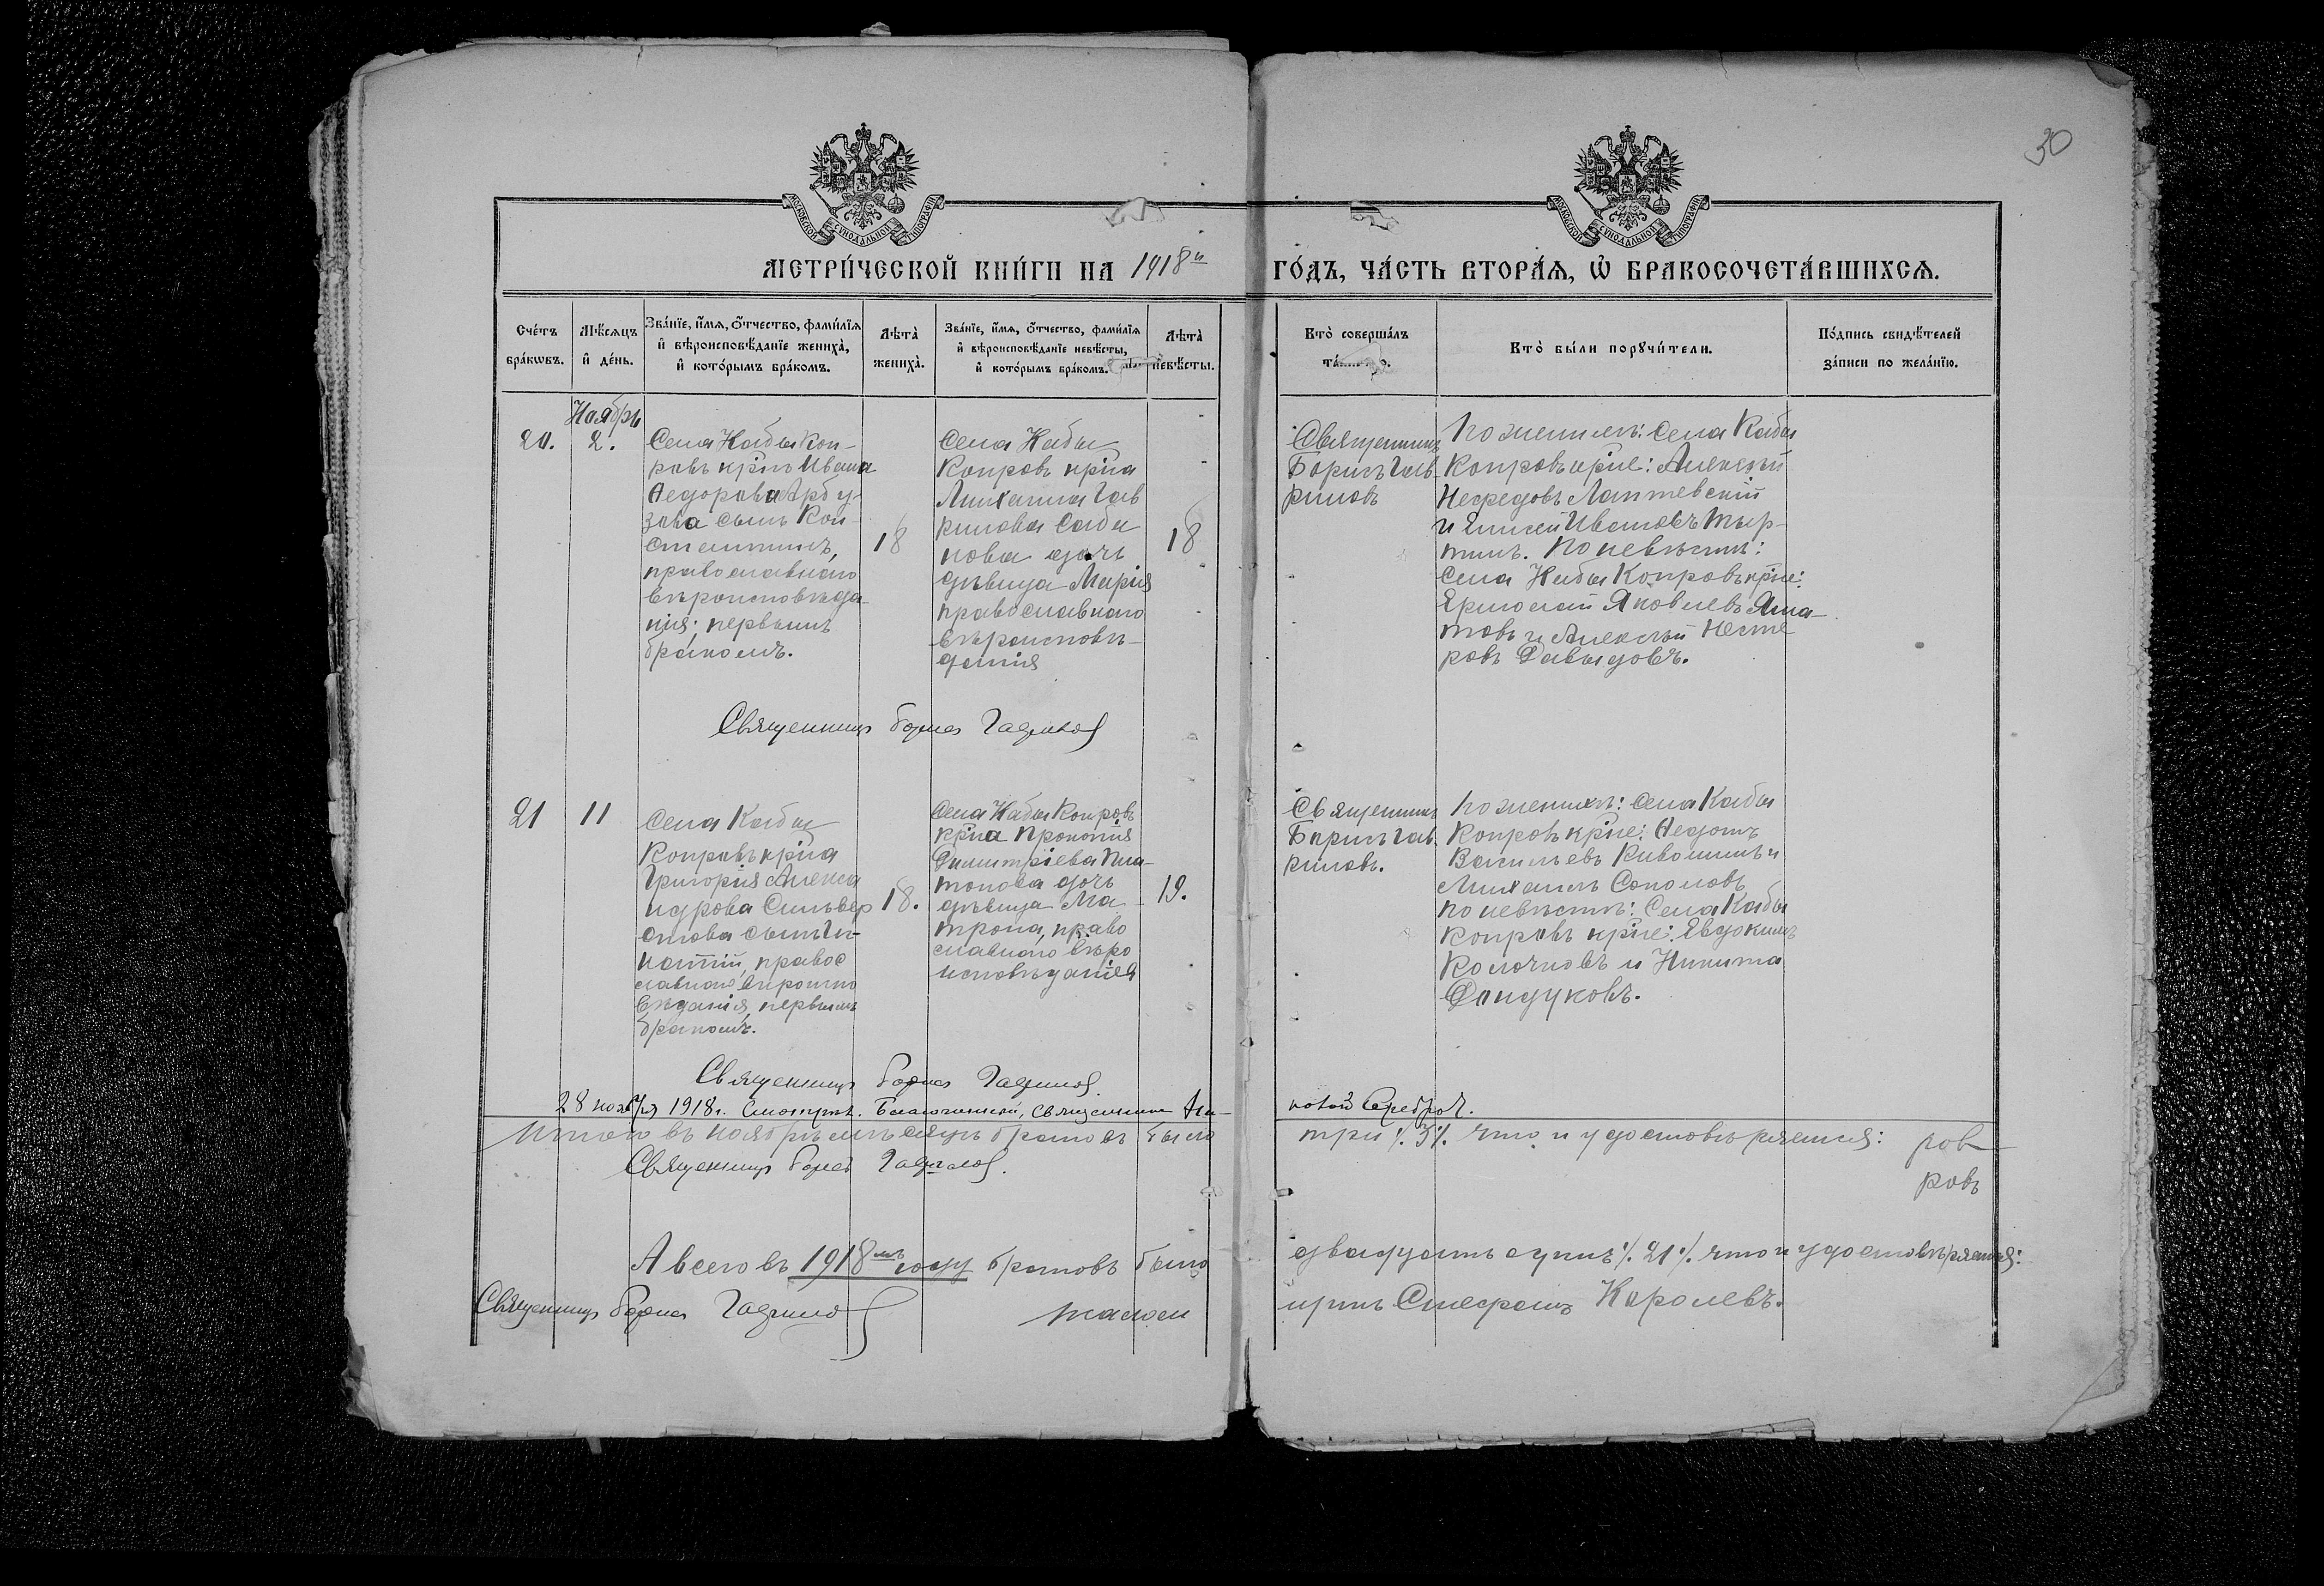 30
МОСКОВСКОЙ СѴНОДАЛЬНОЙ ТИПОГРАФІИ
МОСКОВСКОЙ СѴНОДАЛЬНОЙ ТИПОГРАФІИ
МЕТРИ́ЧЕСКОЙ КНИ́ГИ НА 1918й ГО́ДЪ, ЧА́СТЬ ВТОРА́Я, Ѡ҆ БРАКОСОЧЕТА́ВШИХСЯ.
Сче́тъ бра́кѡвъ.
Мѣ́сяцъ и҆ де́нь.
Зва́нїе, и҆́мя, ѻ҆́тчество, фами́лїя
и҆ вѣроисповѣ́данїе жениха̀,
и҆ кото́рымъ бра́комъ.
Лѣта̀ жениха̀.
Зва́нїе, и҆́мя, ѻ҆́тчество, фами́лїя
и҆ вѣроисповѣ́данїе невѣ́сты,
и҆ кото́рымъ бра́комъ.
Лѣта̀ невѣ́сты.
Кто̀ соверша́лъ
Кто̀ бы́ли порꙋчи́тели.
По́дпись свидѣ́телей
за́писи по жела́нїю.
Ноябрь
20.
2.
Села Кабы Коп-
ровъ крінъ Ивана
Ѳедорова Арбу-
зова сынъ Кон-
стантинъ,
православнаго
вѣроисповѣда-
нія; первымъ
бракомъ.
18
Села Кабы
Копровъ кріна
Михаила Гав
рилова Саби
нова дочь
дѣвица Марія
православнаго
вѣроисповѣ-
данія
18
Священникъ
Борисъ Гав-
риловъ
По женихѣ: Села Кабы
Копровъ кріне: Алексѣй
Нефедовъ Лаптевскій
и Елисей Ивановъ Тыр-
тинъ. По невѣстѣ:
Села Кабы Копровъ кріне:
Ермолай Яковлевъ Яша-
товъ и Алексѣй Несте
ровъ Давыдовъ.
Священникъ Борисъ Гавриловъ
21
11
Села Кабы
Копровъ кріна
Григорія Алекса
ндрова Сильвер
стова сынъ Иг-
натій, правос
лавнаго вѣроиспо
вѣданія, первымъ
бракомъ.
18.
Села Кабы Копровъ
кріна Прокопія
Димитріева Пла-
тонова дочь
дѣвица Ма-
трона, право
славнаго вѣро
исповѣданія
19.
Священникъ
Борисъ Гав.
риловъ.
По женихѣ: Села Кабы
Копровъ кріне: Ѳедотъ
Васильевъ Киволинъ и
Михаилъ Соколовъ
По невѣстѣ: Села Кабы
Копровъ кріне: Евдокимъ
Колочковъ и Никита
Дондуковъ.
Священникъ Борисъ Гавриловъ.
28 ноября 1918г. Смотрѣлъ. Благочинный, священникъ
Итого въ ноябрѣ мѣсяцѣ браковъ было три ·/. 3 ·/. что и удостовѣряется: ров
Священникъ Борисъ Гавриловъ.
ровъ
А всего въ 1918мъ году браковъ было двадцать одинъ ·/. 21 ·/. что и удостовѣряется:
Священникъ Борисъ Гавриловъ
псаломщикъ Стефанъ Королевъ.